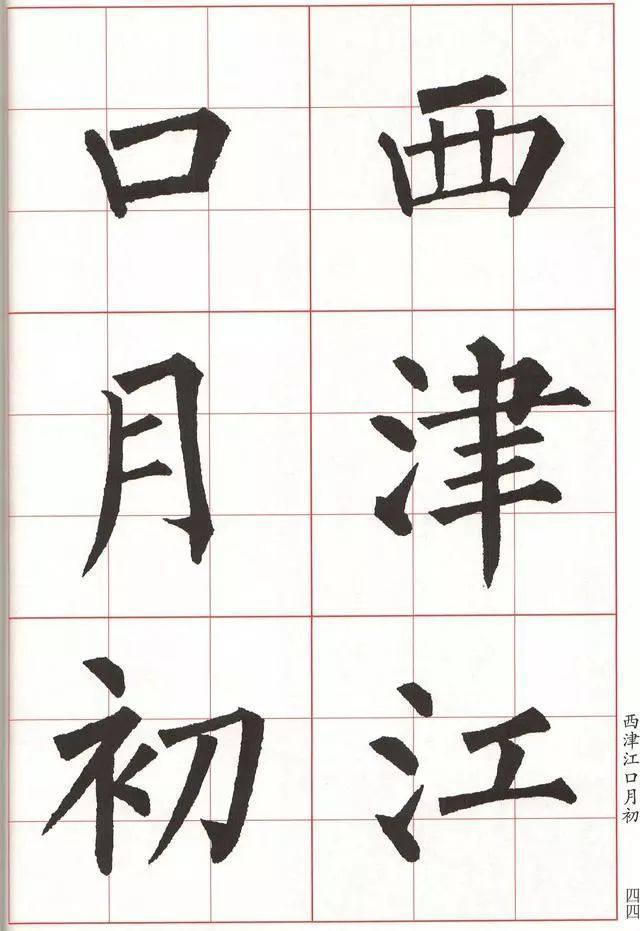 西津江
口月初
西津江口月初
四四